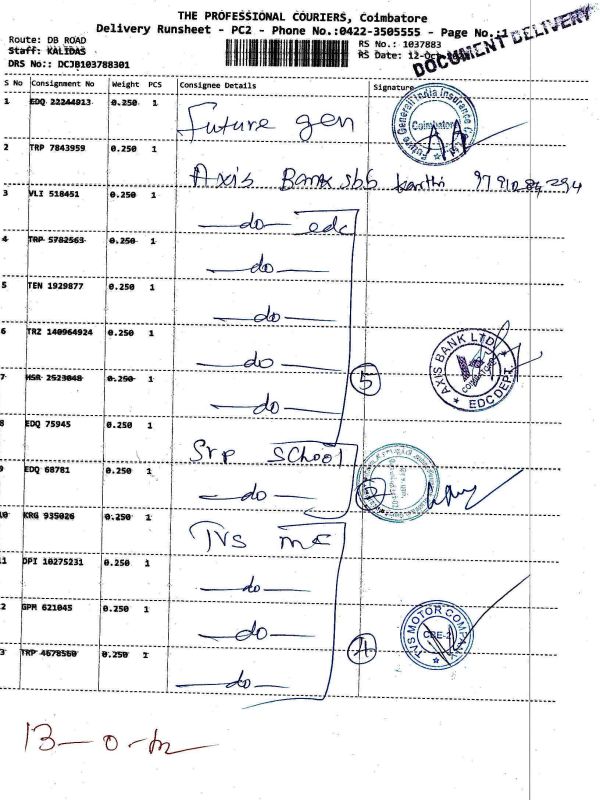 THE PROFESSIONAL COURIERS, Coimbatore
Delivery Runsheet - PC2 - Phone No.:0422-3505555 - Page No.:
DOCUMENT DELIVERY
Route: DB ROAD
Staff: KALIDAS
RS No.: 1037883
RS Date: 12-Oct
DRS No:: DCJB103788301
S No Consignment No Weight PCS Consignee Details Signature
1 EDQ 22244913 0.250 1 Future gen
Future Generali India Insurance
Coimbatore
2 TRP 7843959 0.250 1 Axis Bank sbb karthi
3 VLI 518451 0.250 1 do edc
4 TRP 5782563 0.250 1 do
5 TEN 1929877 0.250 1 do
6 TRZ 140964924 0.250 1 do
7 HSR 2523048 0.250 1 do
5
AXIS BANK LTD
COIMBATORE
EDC DEPT
8 EDQ 75945 0.250 1 Srp School
9 EDQ 68781 0.250 1 do
2
10 KRG 935026 0.250 1 TVS mc
11 DPI 10275231 0.250 1 do
2 GPM 621045 0.250 1 do
3 TRP 4678560 0.250 1 do
4
TVS MOTOR COMPANY
CBE-2
13-0-